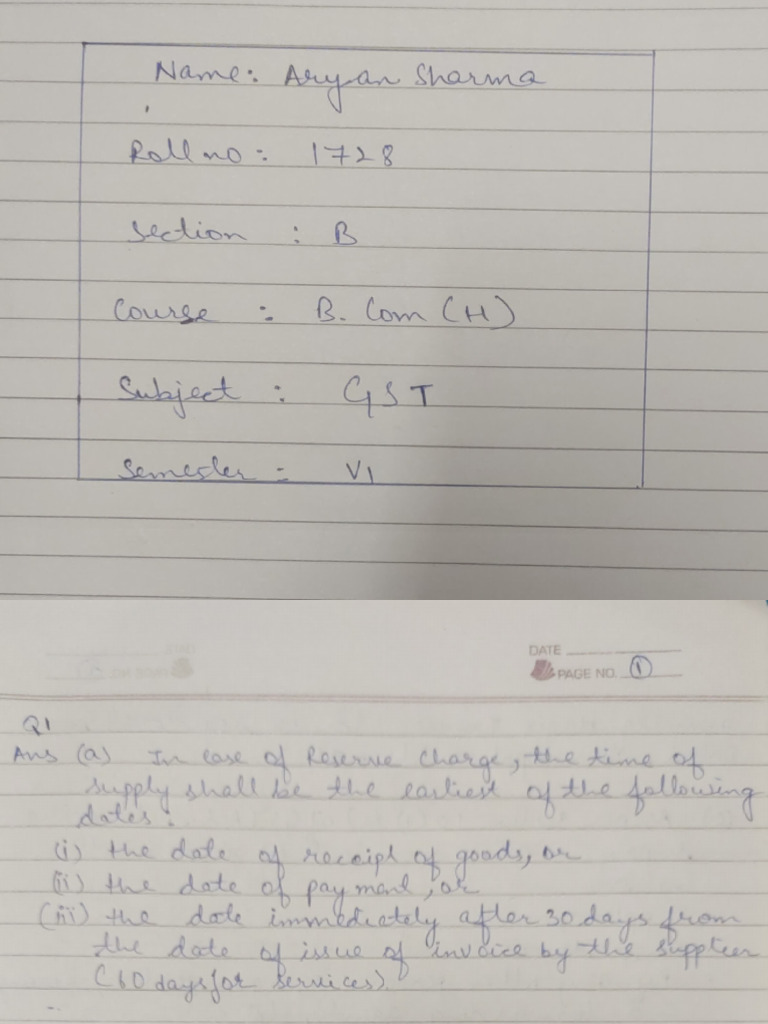 Name: Aryan Sharma
Roll no: 1728
Section : B
Course : B. Com (H)
Subject : GST
Semester = VI
DATE
PAGE NO. 1
Q1
Ans (a) In case of Reserve Charge, the time of
supply shall be the earliest of the following
dates:
(i) the date of receipt of goods, or
(ii) the date of payment, or
(iii) the date immediately after 30 days from
the date of issue of invoice by the supplier
(60 days for services)